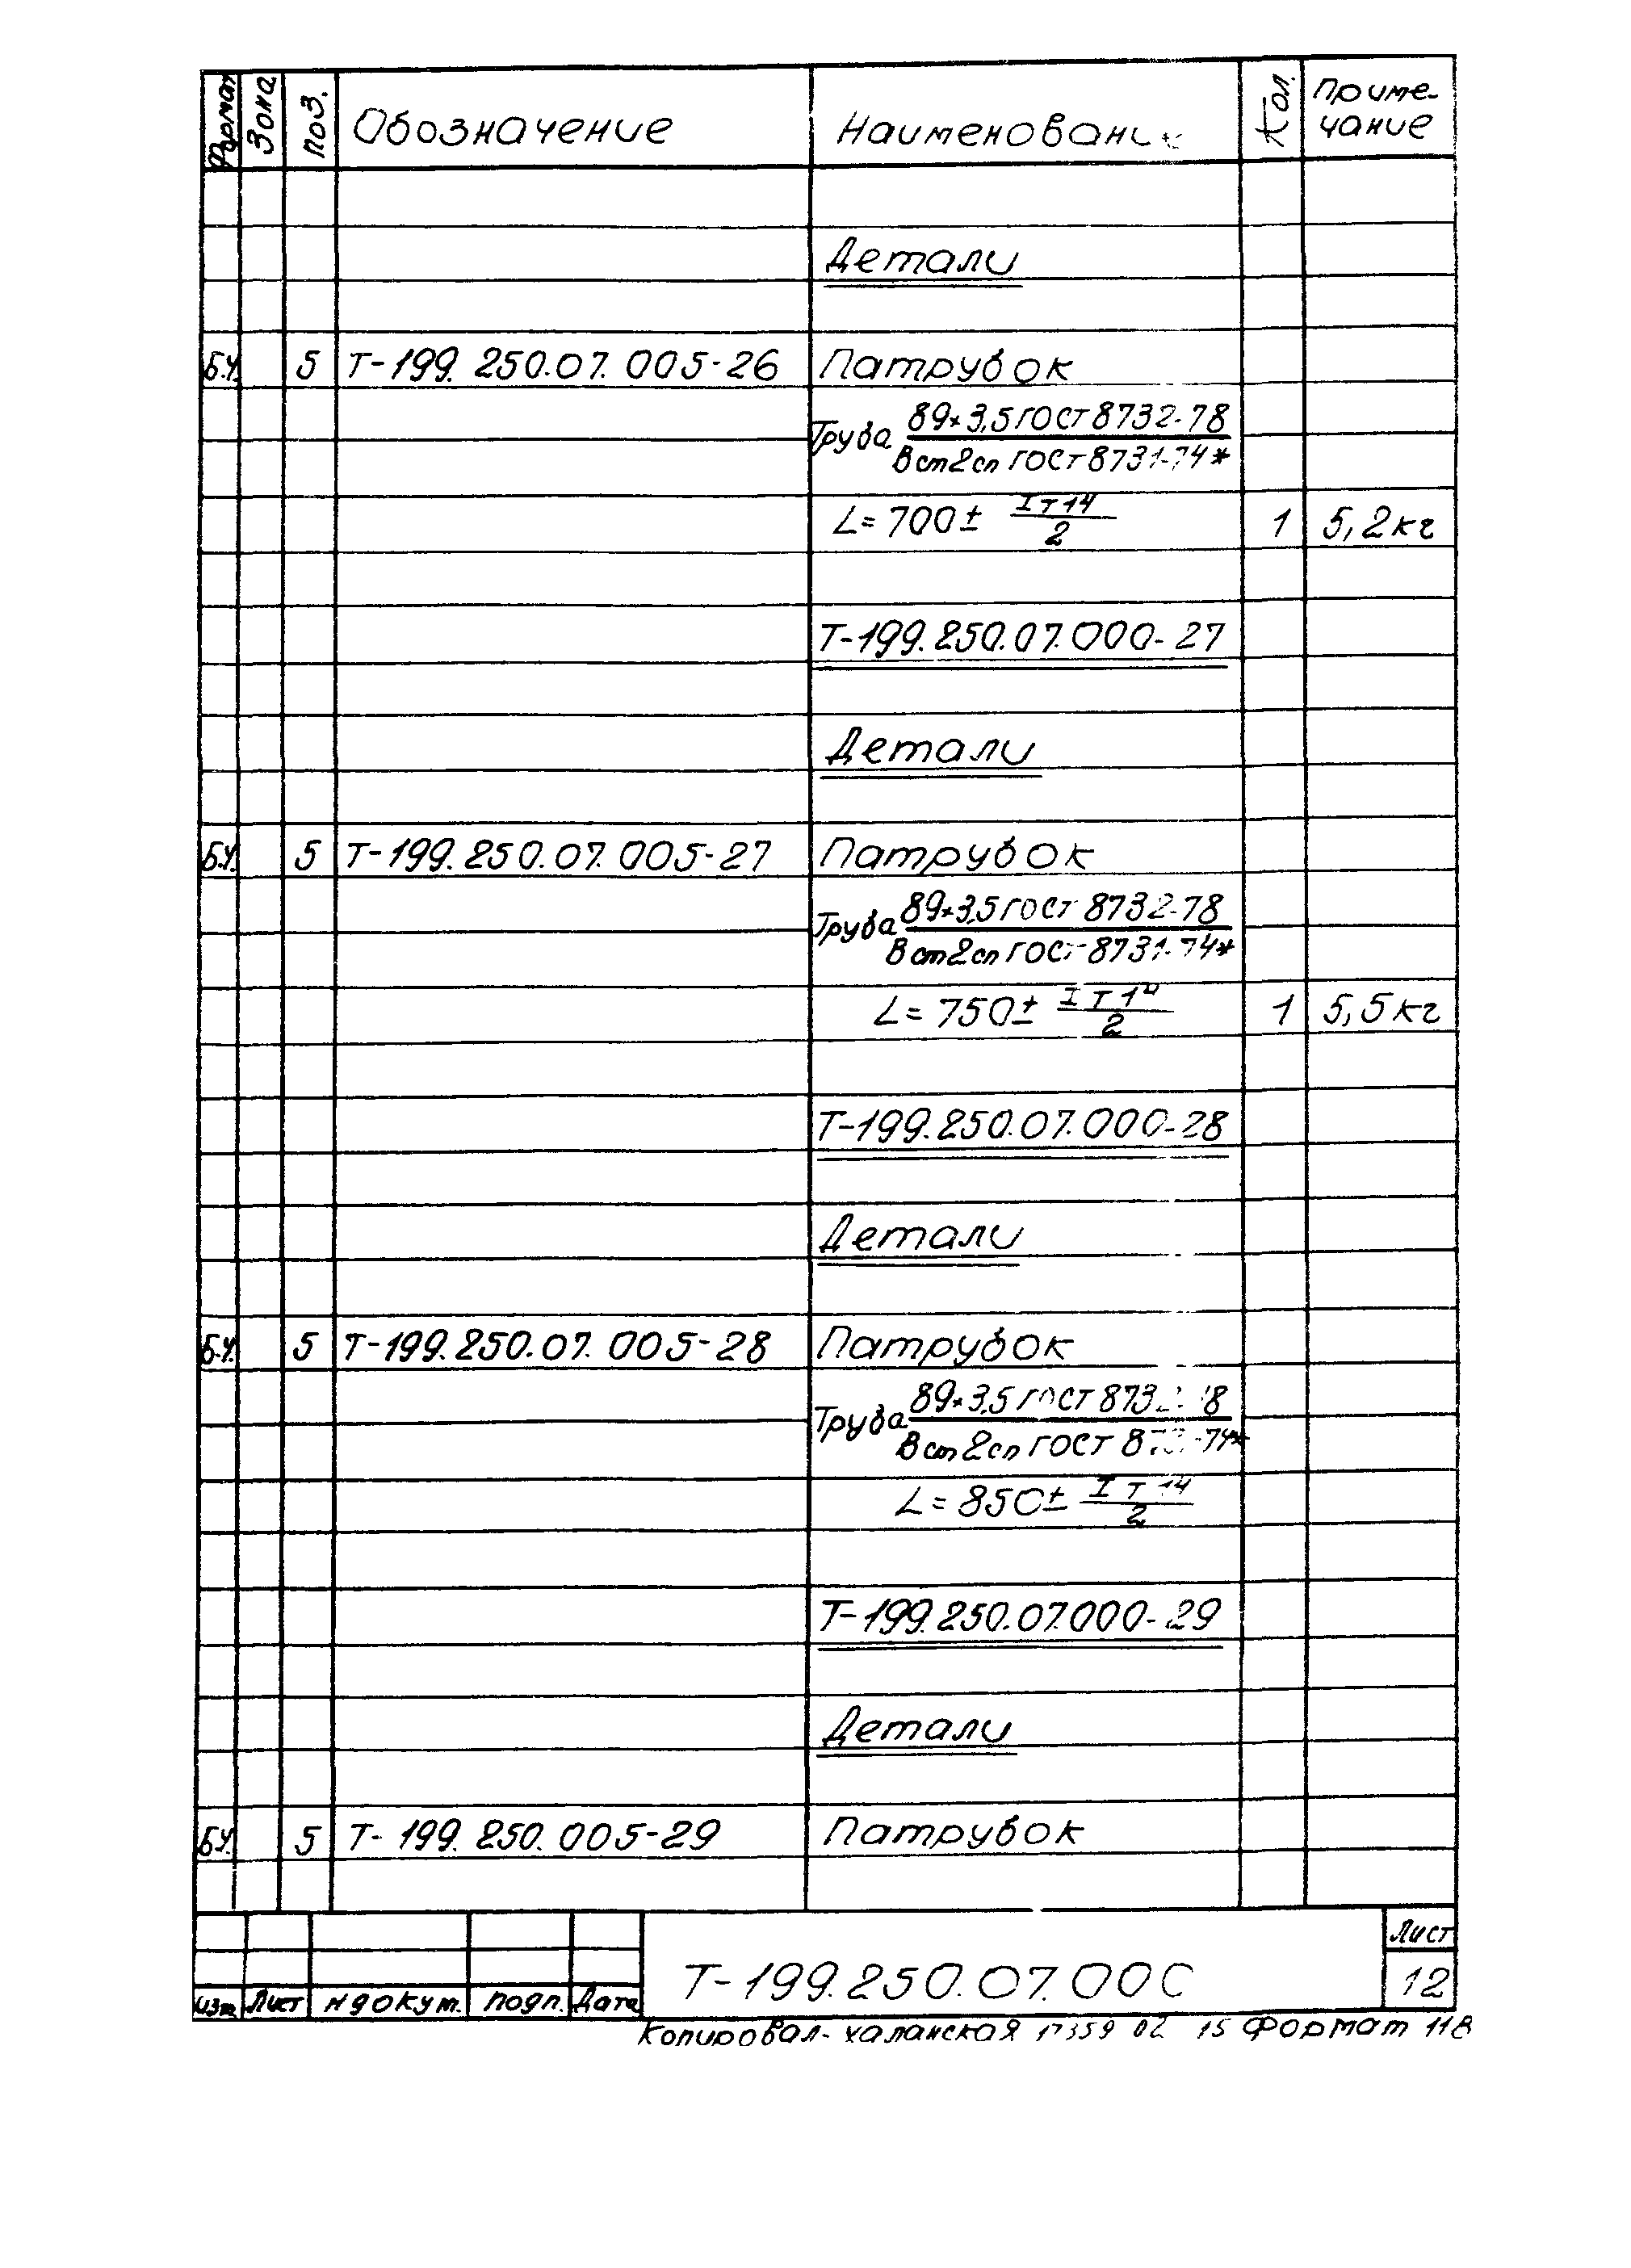 Формат Зона Поз. Обозначение Наименование Кол. Приме-
чание
Детали
Б.Ч. 5 Т-199.250.07.005-26 Патрубок
Труба 89×3,5 ГОСТ 8732-78
В ст2сп ГОСТ 8731-74*
L=700± IT14/2 1 5,2кг
Т-199.250.07.000-27
Детали
Б.Ч. 5 Т-199.250.07.005-27 Патрубок
Труба 89×3,5 ГОСТ 8732-78
В ст2сп ГОСТ 8731-74*
L=750± IT14/2 1 5,5кг
Т-199.250.07.000-28
Детали
Б.Ч. 5 Т-199.250.07.005-28 Патрубок
Труба 89×3,5 ГОСТ 8732-78
В ст2сп ГОСТ 8731-74*
L=850± IT14/2
Т-199.250.07.000-29
Детали
Б.Ч. 5 Т-199.250.005-29 Патрубок
Лист
Т-199.250.07.000 12
Изм Лист N докум. Подп. Дата
Копировал- Халанская 17359 02 15 Формат 11В